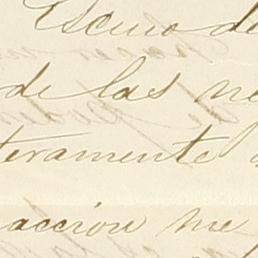 Escmo de
de las ne
teramente
acción me